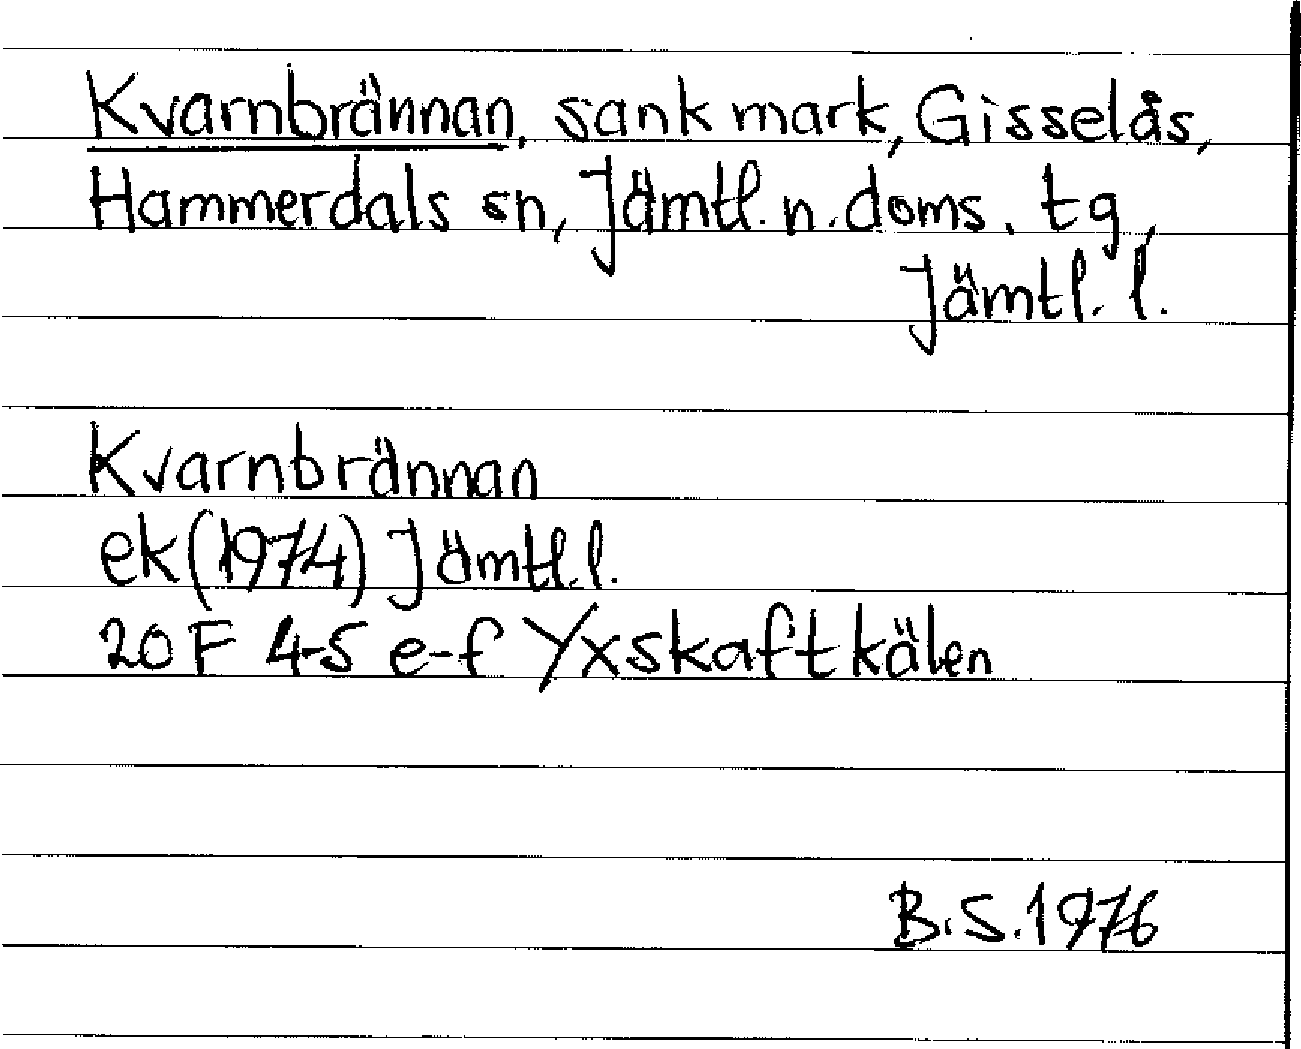 Kvarnbrännan, sank mark, Gisselås,
Hammerdals sn, Jämtl. n. doms. tg,
Jämtl. l.
Kvarnbrännan
ek (1974) Jämtl. l.
20 F 4-5 e-f Yxskaftkälen
B.S. 1976